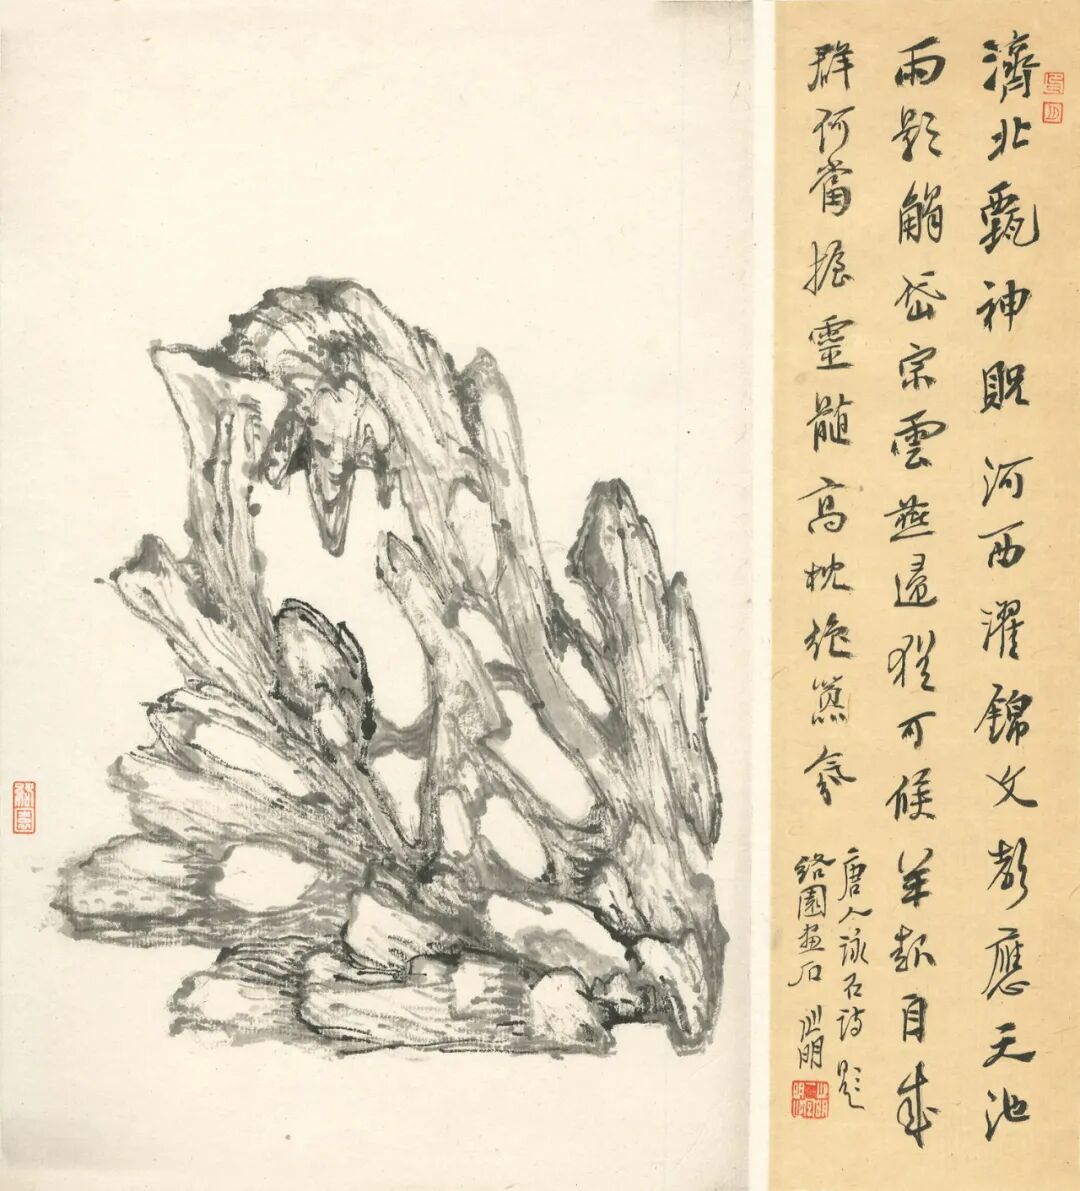 濟北甄神貺河西濯錦文聲應天池
雨影觸岱宗雲燕歸猶可候羊起自成
群何當握靈髓高枕絕囂氛
唐人詠石詩題
絡園畫石 明
絡園